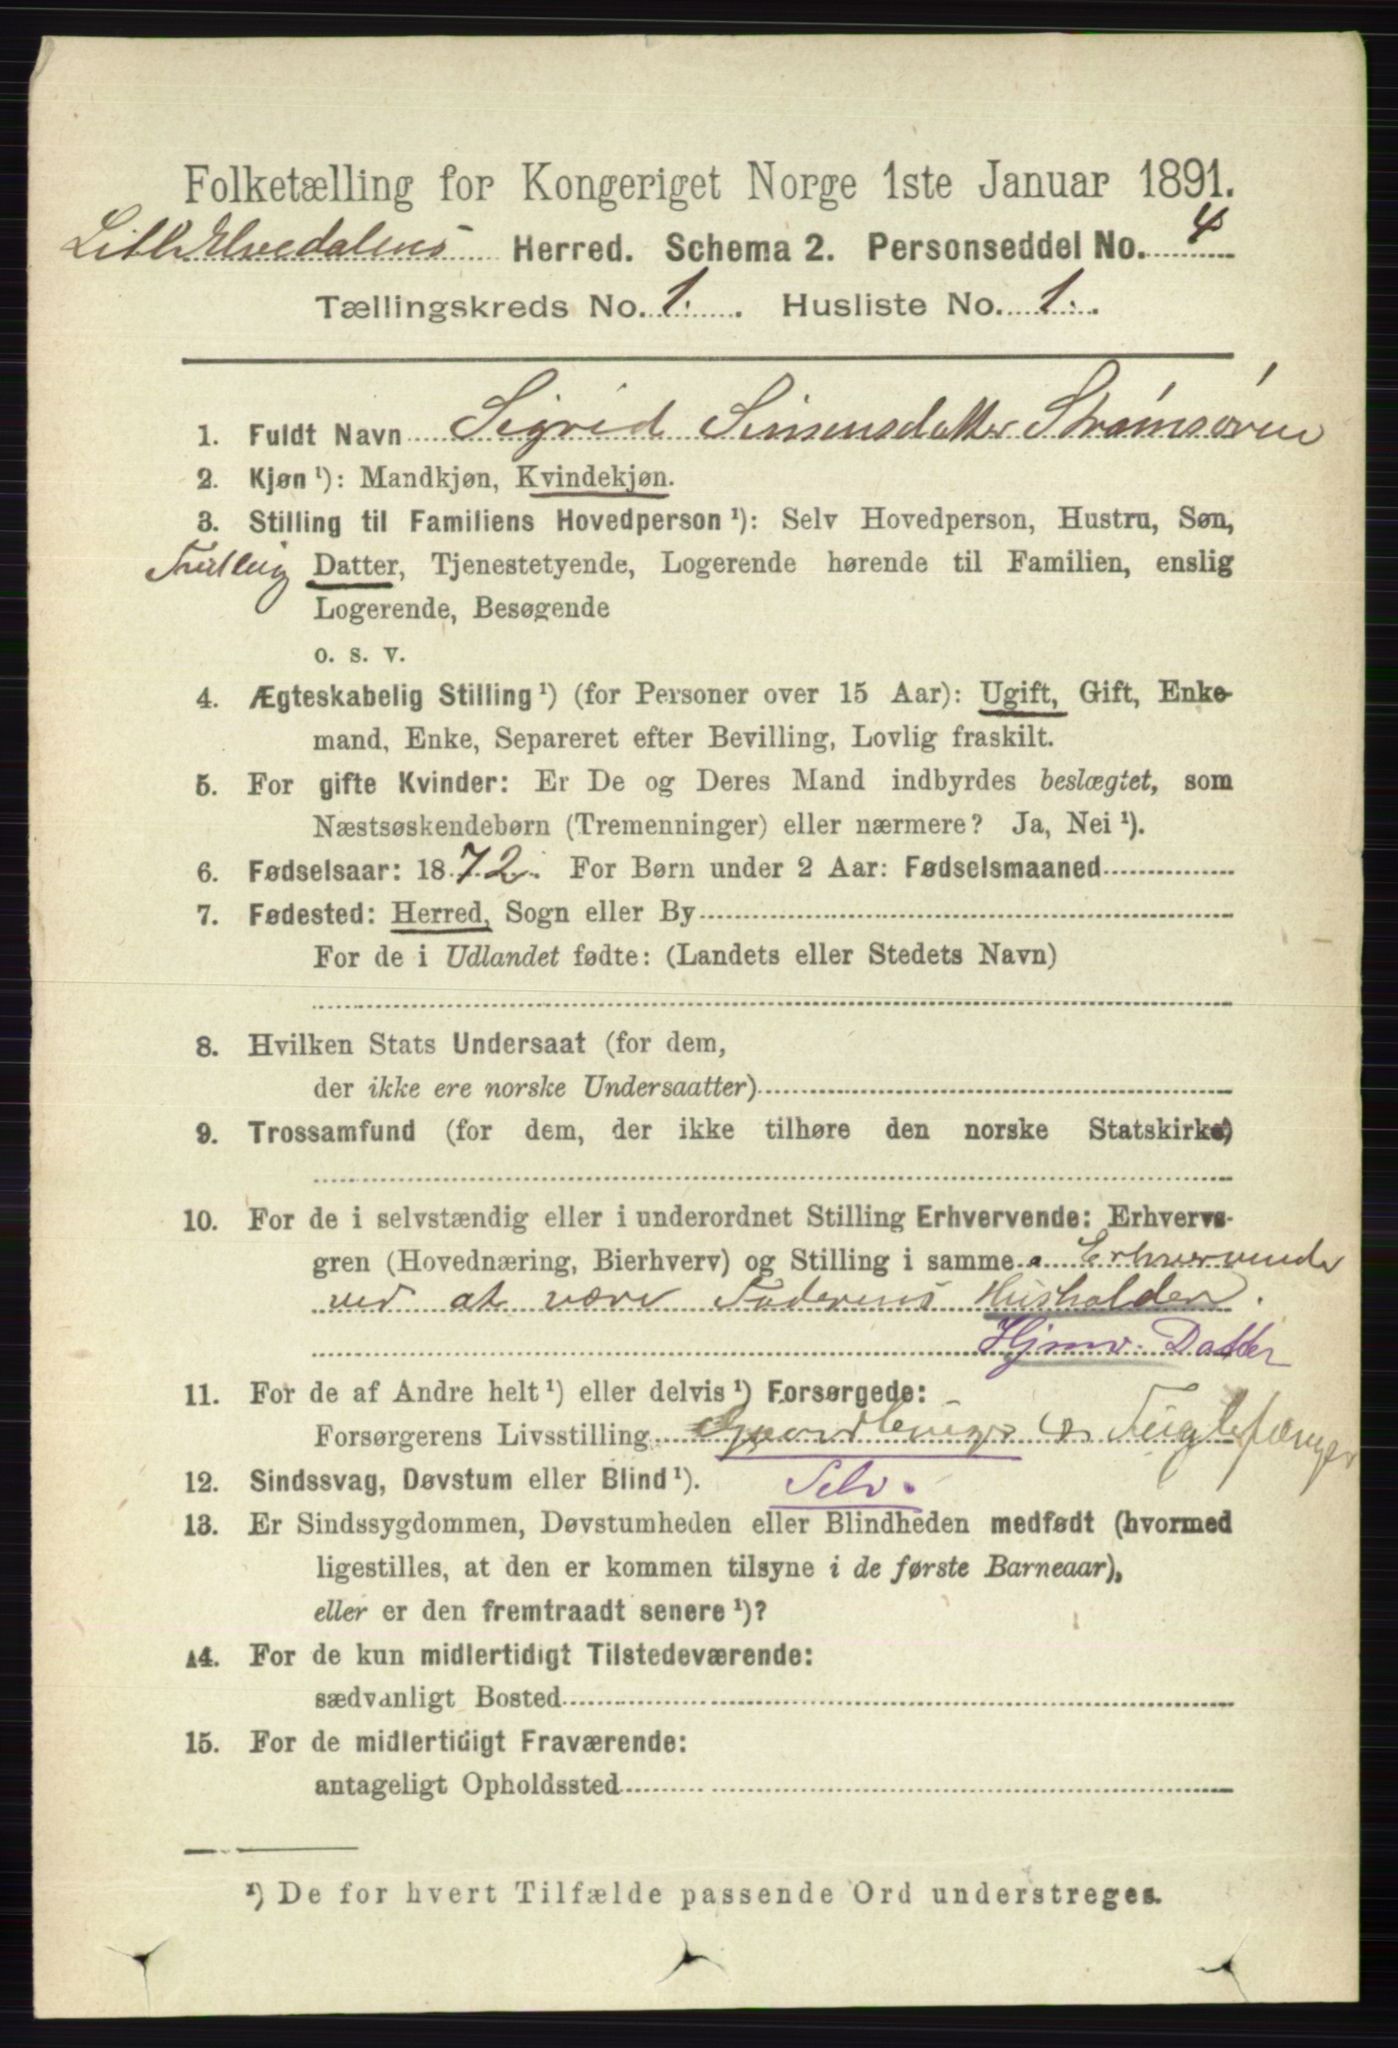 Folketælling for Kongeriget Norge 1ste Januar 1891.
Lille Elvedalens Herred. Schema 2. Personseddel No. 4
Tællingskreds No. 1. Husliste No. 1.
1. Fuldt Navn Sigrid Simensdatter Strømsøien
2. Kjøn ¹): Mandkjøn, Kvindekjøn.
3. Stilling til Familiens Hovedperson ¹): Selv Hovedperson, Hustru, Søn,
Datter, Tjenestetyende, Logerende hørende til Familien, enslig
Logerende, Besøgende
o. s. v.
4. Ægteskabelig Stilling ¹) (for Personer over 15 Aar): Ugift, Gift, Enke-
mand, Enke, Separeret efter Bevilling, Lovlig fraskilt.
5. For gifte Kvinder: Er De og Deres Mand indbyrdes beslægtet, som
Næstsøskendebørn (Tremenninger) eller nærmere? Ja, Nei ¹).
6. Fødselsaar: 1872. For Børn under 2 Aar: Fødselsmaaned
7. Fødested: Herred, Sogn eller By
For de i Udlandet fødte: (Landets eller Stedets Navn)
8. Hvilken Stats Undersaat (for dem,
der ikke ere norske Undersaatter)
9. Trossamfund (for dem, der ikke tilhøre den norske Statskirke)
10. For de i selvstændig eller i underordnet Stilling Erhvervende: Erhvervs-
gren (Hovednæring, Bierhverv) og Stilling i samme. Erhvervende
ved at være Faderens Husholder.
Hjmv. Datter
11. For de af Andre helt ¹) eller delvis ¹) Forsørgede:
Forsørgerens Livsstilling Gaardbruger & Fuglefænger
12. Sindssvag, Døvstum eller Blind ¹). Selv.
13. Er Sindssygdommen, Døvstumheden eller Blindheden medfødt (hvormed
ligestilles, at den er kommen tilsyne i de første Barneaar),
eller er den fremtraadt senere ¹)?
14. For de kun midlertidigt Tilstedeværende:
sædvanligt Bosted
15. For de midlertidigt Fraværende:
antageligt Opholdssted
¹) De for hvert Tilfælde passende Ord understreges.